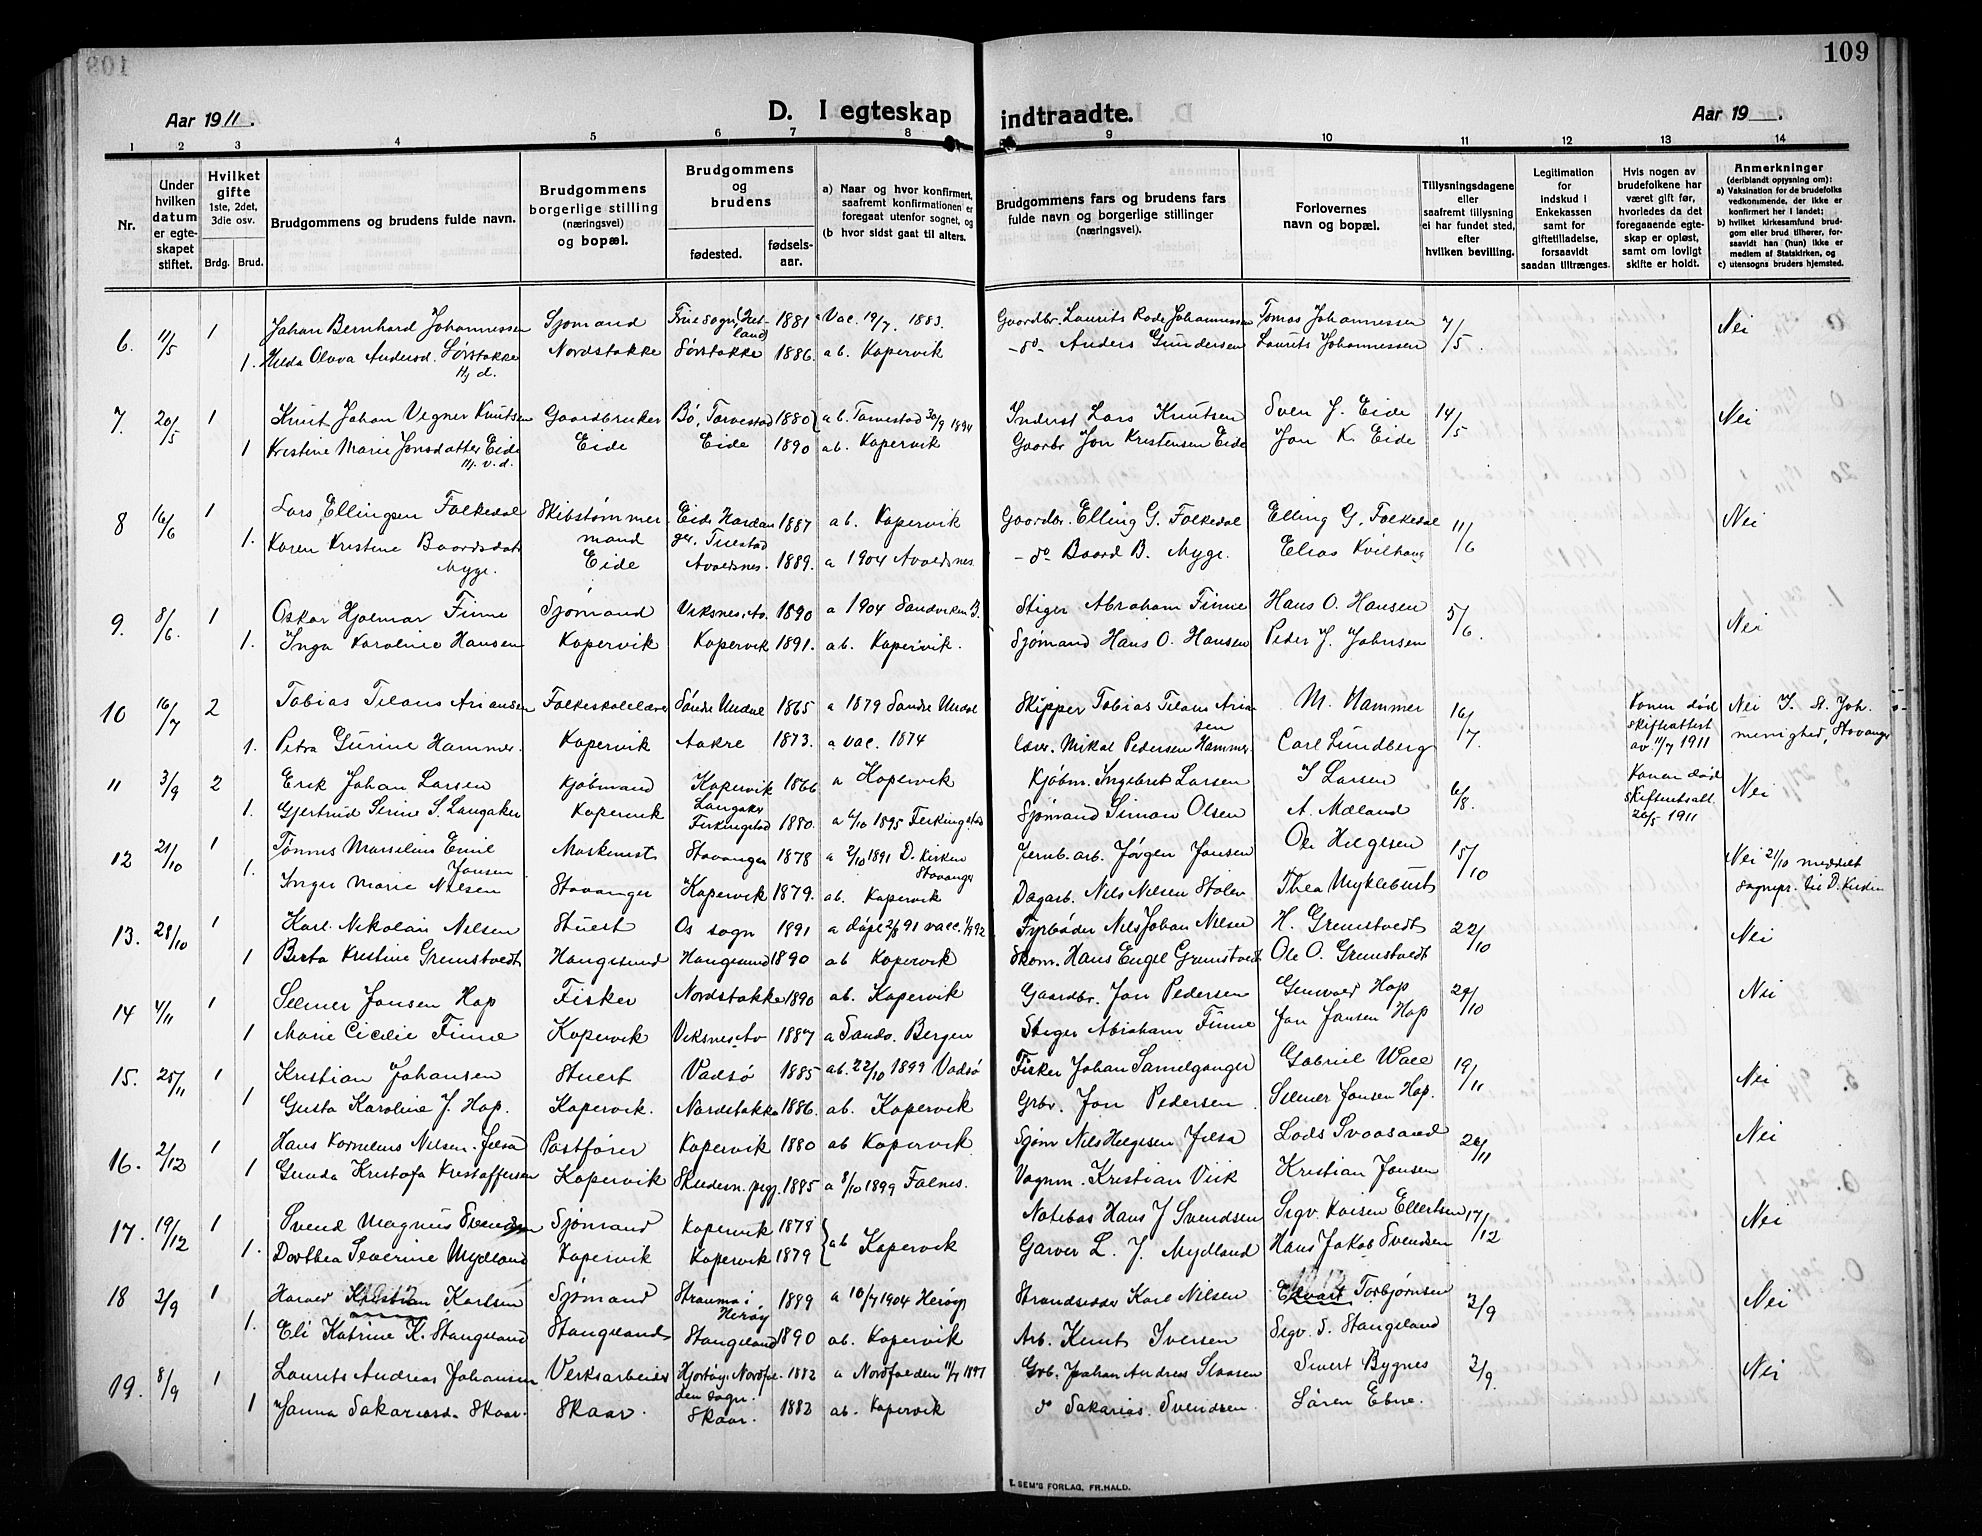 109
Aar 1911.
D. I egteskap indtraadte.
Aar 19
1 2 3 4 5 6 7 8 9 10 11 12 13 14
Nr.
Under hvilken datum er egteskapet stiftet.
Hvilket gifte 1ste, 2det, 3die osv.
Brdg. Brud.
Brudgommens og brudens fulde navn.
Brudgommens borgerlige stilling (næringsvei) og bopæl.
Brudgommens og brudens
fødested.
fødselsaar.
a) Naar og hvor konfirmert, saafremt konfirmationen er foregaat utenfor sognet, og
(b hvor sidst gaat til alters.
Brudgommens fars og brudens fars fulde navn og borgerlige stillinger (næringsvei).
Forlovernes navn og bopæl.
Tillysningsdagene eller saafremt tillysning ei har fundet sted, efter hvilken bevilling.
Legitimation for indskud i Enkekassen samt for giftetilladelse, forsaavidt saadan tiltrænges.
Hvis nogen av brudefolkene har været gift før, hvorledes da det foregaaende egteskap er opløst, samt om lovligt skifte er holdt.
Anmerkninger (deriblandt opysning om):
a) Vaksination for de brudefolks vedkommende, der ikke er konfirmert her i landet;
b) hvilket kirkesamfund brudgom eller brud tilhører, forsaavidt han (hun) ikke er medlem af Statskirken, og
c) utensogns bruders hjemsted.
6. 11/5 1 Johan Bernhard Johannessen Sjømand 1881 a Vac. 19/7. 1883. Gaardbr. Laurits Rode Johannessen Tomas Johannessen 7/5 Nei
1. Hilda Olava Andersd. Sørstokke Nordstokke Sørstokke 1886. ab. Kopervik -do- Anders Gundersen Laurits Johannessen
Hj d.
7. 20/5 1 Knut Johan Vegner Knutsen Gaardbruker Bø, Torvestad 1880 a b. Torvestad 30/9 1894 Inderst Lars Knutsen Sven J. Eide 14/5 Nei
1 Kristine Marie Jonsdatter Eide Eide Eide 1890 ab. Kopervik Gaarbr Jon Kristensen Eide Jon K. Eide
Hj. v. d.
8 16/6 1 Lars Ellingsen Folkedal Skibstømmermand Eide Hardanger, 1887 ab. Kopervik Gaardbr. Elling G. Folkedal Elling G. Folkedal 11/6 Nei
1. Karen Kristine Baardsdatr Myge. Eide Avaldsnes. 1889. a 1904 Avaldsnes. - do Baard B. Myge. Elias Kvilhaug
9. 8/6. 1 Oskar Hjalmar Finne Sjømand Viksnes, Av. 1890 a 1904 Sandviken B. Stiger Abraham Finne Hans O. Hansen 5/6. Nei
1. Inga Karoline Hansen Kopervik Kopervik 1891. ab. Kopervik. Sjømand Hans O. Hansen Peder J. Johnsen
10 16/7 2 Tobias Tilans Ariansen Folkeskolelærer Søndre Undal 1865 a 1879 Søndre Undal Skipper Tobias Tilans Ariansen M. Hammer 16/7 Konen død skifteattest av 11/7 1911 Nei I. St. Joh. menighed, Stavanger
1. Petra Gurine Hammer. Kopervik Aakre 1873. a vac. 1874 lærer. Mikal Pedersen Hammer. Carl Lundberg
11 3/9 2 Erik Johan Larsen Kjøbmand Kopervik 1866 a Kopervik Kjøbm. Ingebret Larsen I Larsen 6/8. Konen død 26/5 1911 Nei
1. Gjertrud Serine S. Langaker Kopervik Langaker Ferkingstad 1880. a 6/10 1895 Ferkingstad Sjømand Simon Olsen A. Mæland
12 21/10 1 Tønnes Marselius Emil Jonsen Maskinist Stavanger 1878 a 2/10 1891 D. Kirken Stavanger Jernb. arb. Jørgen Jonsen Ole Helgesen 15/10 Nei 21/10 meddelt sognepr. til D. Kirken
1. Inger Marie Nilsen Stavanger Kopervik 1879. ab. Kopervik Dagarb. Nils Nilsen Stolen Thea Myklebust
13. 28/10 1 Karl Nikolai Nilsen Stuert Os sogn 1891 Fyrbøder Nils Johan Nilsen H. Gremstvedt 22/10 Nei
1 Berta Kristine Gremstvedt Haugesund Haugesund 1890 ab Kopervik Skom. Hans Engel Gremstvedt Ole O. Gremstvedt
14 4/11 1 Selmer Jonsen Hop Fisker Nordstokke 1890 ab. Kopervik Gaardbr. Jon Pedersen Hop 29/10 Nei
1 Marie Cicilie Finne Kopervik Viksnes, Av 1887 a Sandv. Bergen Stiger Abraham Finne Jon Jonsen Hop
15. 25/11 1 Kristian Johansen Stuert Vadsø 1885 ab. 22/10 1899 Vadsø Fisker Johan Samelganger Gabriel Wall 19/11 Nei
1 Gusta Karoline J. Hop. Kopervik. Nordstokke 1886. ab. Kopervik Grbr. Jon Pedersen Selmer Jonsen Hop.
16. 2/12 1 Hans Kornelius Nilsen Jelsa Postfører Kopervik 1880 ab Kopervik Sjøm Nils Helgesen Jelsa Lods Svaasand 26/11 Nei
1 Gunda Kristofa Kristoffersen Kopervik Skudesn. pgj. 1885 a 8/10 1899 Falnes. Vognm. Kristian Viik Kristian Jonsen
17. 19/12 1 Svend Magnus Svendsen Sjømand Kopervik 1878 ab Kopervik Notebas Hans J Svendsen Sigv. Kaisen Ellertsen 17/12 Nei
1. Dorthea Severine Mydland Kopervik Kopervik 1879 Garver L. J. Mydland Hans Jakob Svendsen
18 3/9 1 Harald Kristian Karlsen Sjømand Straumø i Herøy 1889 a 10/7 1904 Herøy Strandsidder Karl Nilsen Edvart Torbjørnsen 3/9 Nei
1. Eli Katrine K. Stangeland Stangeland Stangeland 1890 ab. Kopervik Arb. Knut Iversen Sigv. S. Stangeland
19. 8/9 1 Laurits Andreas Johansen Verksarbeider den sogn. 1882 a Nordfolden Grb. Johan Andreas Sivert Bygnes 3/9. Nei
1 Janna Sakariasd. Skaar. Skaar. Skaar. 1882 ab. Kopervik do Sakarias Svendsen Søren Ebne.
E. SEM'S FORLAG, FR.HALD.